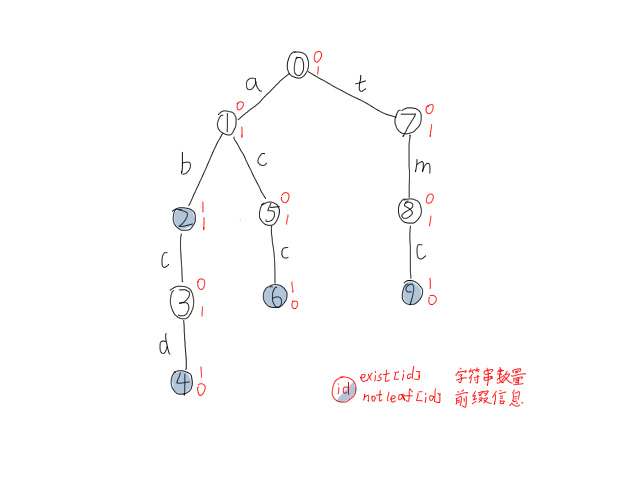 0 0
1
a t
0
1 1
7 0
1
b c m
2 1
1
5 0
1
8 0
1
c c c
3 0
1
6 1
0
9 1
0
d
4 1
0
id exist[id] 字符串数量
notleaf[id] 前缀信息